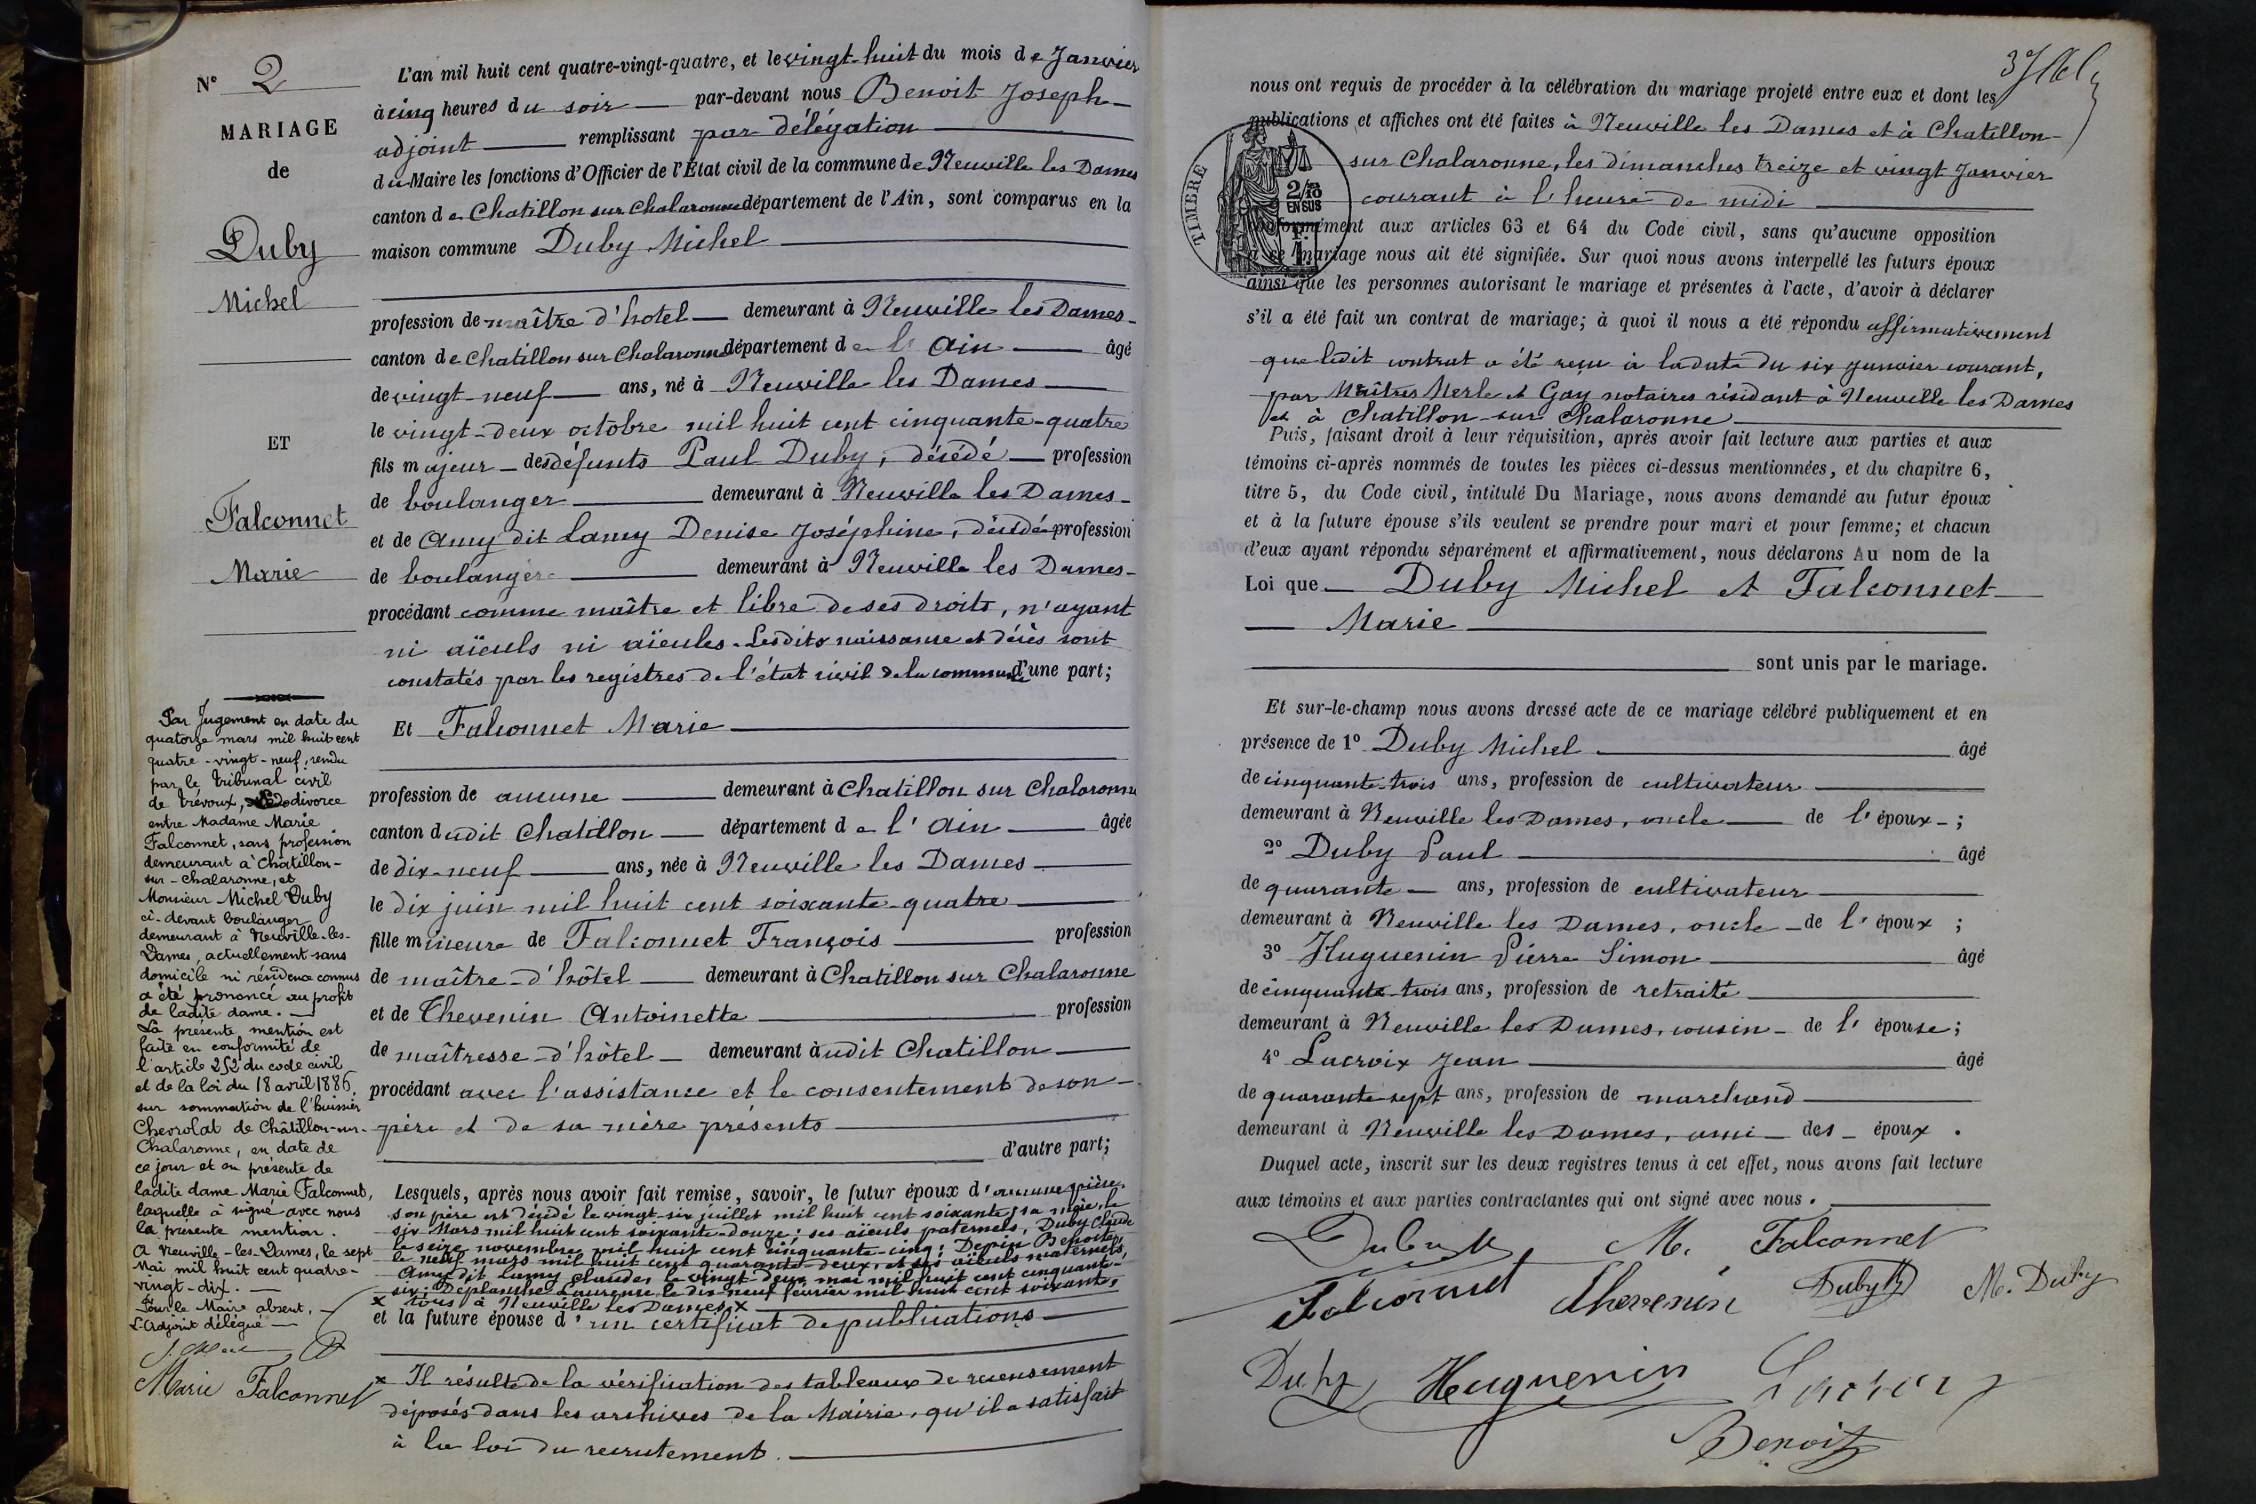 N° 2
MARIAGE
de
Duby
Michel
ET
Falconnet
Marie
Par Jugement en date du
quatorze mars mil huit cent
quatre-vingt-neuf, rendu
par le tribunal civil
de Trévoux, le divorce
entre Madame Marie
Falconnet, sans profession
demeurant à Châtillon-
sur-Chalaronne, et
Monsieur Michel Duby
ci-devant boulanger
demeurant à Neuville-les-
Dames, actuellement sans
domicile ni résidence connus
a été prononcé au profit
de ladite dame.
La présente mention est
faite en conformité de
l'article 252 du code civil
et de la loi du 18 avril 1886,
sur sommation de l'huissier
Chevrolat de Châtillon-sur-
Chalaronne, en date de
ce jour et en présente de
ladite dame Marie Falconnet,
laquelle a signé avec nous
la présente mention.
A Neuville-les-Dames, le sept
Mai mil huit cent quatre-
vingt-dix.
Pour le Maire absent,
L'Adjoint délégué
Marie Falconnet
L'an mil huit cent quatre-vingt-quatre, et le vingt-huit du mois de Janvier
à cinq heures du soir par-devant nous Benoit Joseph
adjoint remplissant par délégation
du Maire les fonctions d'Officier de l'État civil de la commune de Neuville les Dames
canton de Chatillon sur Chalaronne département de l'Ain, sont comparus en la
maison commune Duby Michel
profession de maître d'hotel demeurant à Neuville les Dames
canton de Chatillon sur Chalaronne département de l' Ain âgé
de vingt-neuf ans, né à Neuville les Dames
le vingt-deux octobre mil huit cent cinquante-quatre
fils majeur des défunts Paul Duby, décédé profession
de boulanger demeurant à Neuville les Dames
et de Amy dit Lamy Denise Joséphine, décédée profession
de boulangère demeurant à Neuville les Dames
procédant comme maître et libre de ses droits, n'ayant
ni aïeuls ni aïeules. Lesdits naissance et décès sont
constatés par les registres de l'état civil de la commune d'une part;
Et Falconnet Marie
profession de aucune demeurant à Chatillon sur Chalaronne
canton dudit Chatillon département de l' Ain âgée
de dix-neuf ans, née à Neuville les Dames
le dix juin mil huit cent soixante-quatre
fille mineure de Falconnet François profession
de maître-d'hôtel demeurant à Chatillon sur Chalaronne
et de Thevenin Antoinette profession
de maîtresse-d'hôtel demeurant à udit Chatillon
procédant avec l'assistance et le consentement de son
père et de sa mère présents
d'autre part;
Lesquels, après nous avoir fait remise, savoir, le futur époux d'aucune pièce,
son père est décédé le vingt-six juillet mil huit cent soixante; sa mère, le
six Mars mil huit cent soixante-douze; ses aïeuls paternels, Duby Claude
le seize novembre mil huit cent cinquante-cinq; Depin Benoite,
le neuf mars mil huit cent quarante-deux, et ses aïeuls maternels,
Amy dit Lamy Claude, le vingt-deux mai mil huit cent cinquante-
six, Deplanche Laurence le dix-neuf février mil huit cent soixante,
x tous à Neuville les Dames x
et la future épouse d'un certificat de publications
x Il résulte de la vérification des tableaux de recensement
déposés dans les archives de la Mairie, qu'il a satisfait
à la loi du recrutement.
nous ont requis de procéder à la célébration du mariage projeté entre eux et dont les
publications et affiches ont été faites à Neuville les Dames et à Chatillon-
sur Chalaronne, les dimanches treize et vingt Janvier
courant à l'heure de midi
TIMBRE
2/10
EN SUS
conformément aux articles 63 et 64 du Code civil, sans qu'aucune opposition
à ce mariage nous ait été signifiée. Sur quoi nous avons interpellé les futurs époux
ainsi que les personnes autorisant le mariage et présentes à l'acte, d'avoir à déclarer
s'il a été fait un contrat de mariage; à quoi il nous a été répondu affirmativement
que ledit contrat a été reçu à la date du six janvier courant,
par Maîtres Merle et Gay notaires résidant à Neuville les Dames
et à Chatillon-sur-Chalaronne
Puis, faisant droit à leur réquisition, après avoir fait lecture aux parties et aux
témoins ci-après nommés de toutes les pièces ci-dessus mentionnées, et du chapitre 6,
titre 5, du Code civil, intitulé Du Mariage, nous avons demandé au futur époux
et à la future épouse s'ils veulent se prendre pour mari et pour femme; et chacun
d'eux ayant répondu séparément et affirmativement, nous déclarons Au nom de la
Loi que Duby Michel et Falconnet
Marie
sont unis par le mariage.
Et sur-le-champ nous avons dressé acte de ce mariage célébré publiquement et en
présence de 1° Duby Michel âgé
de cinquante-trois ans, profession de cultivateur
demeurant à Neuville les Dames, oncle de l'époux;
2° Duby Paul âgé
de quarante ans, profession de cultivateur
demeurant à Neuville les Dames, oncle de l'époux;
3° Huguenin Pierre Simon âgé
de cinquante-trois ans, profession de retraité
demeurant à Neuville les Dames, cousin de l'épouse;
4° Lacroix Jean âgé
de quarante-sept ans, profession de marchand
demeurant à Neuville les Dames, ami des époux.
Duquel acte, inscrit sur les deux registres tenus à cet effet, nous avons fait lecture
aux témoins et aux parties contractantes qui ont signé avec nous.
Duby M. M. Falconnet
Falconnet Thevenin Duby M. Duby
Duby Huguenin Lacroix
Benoit